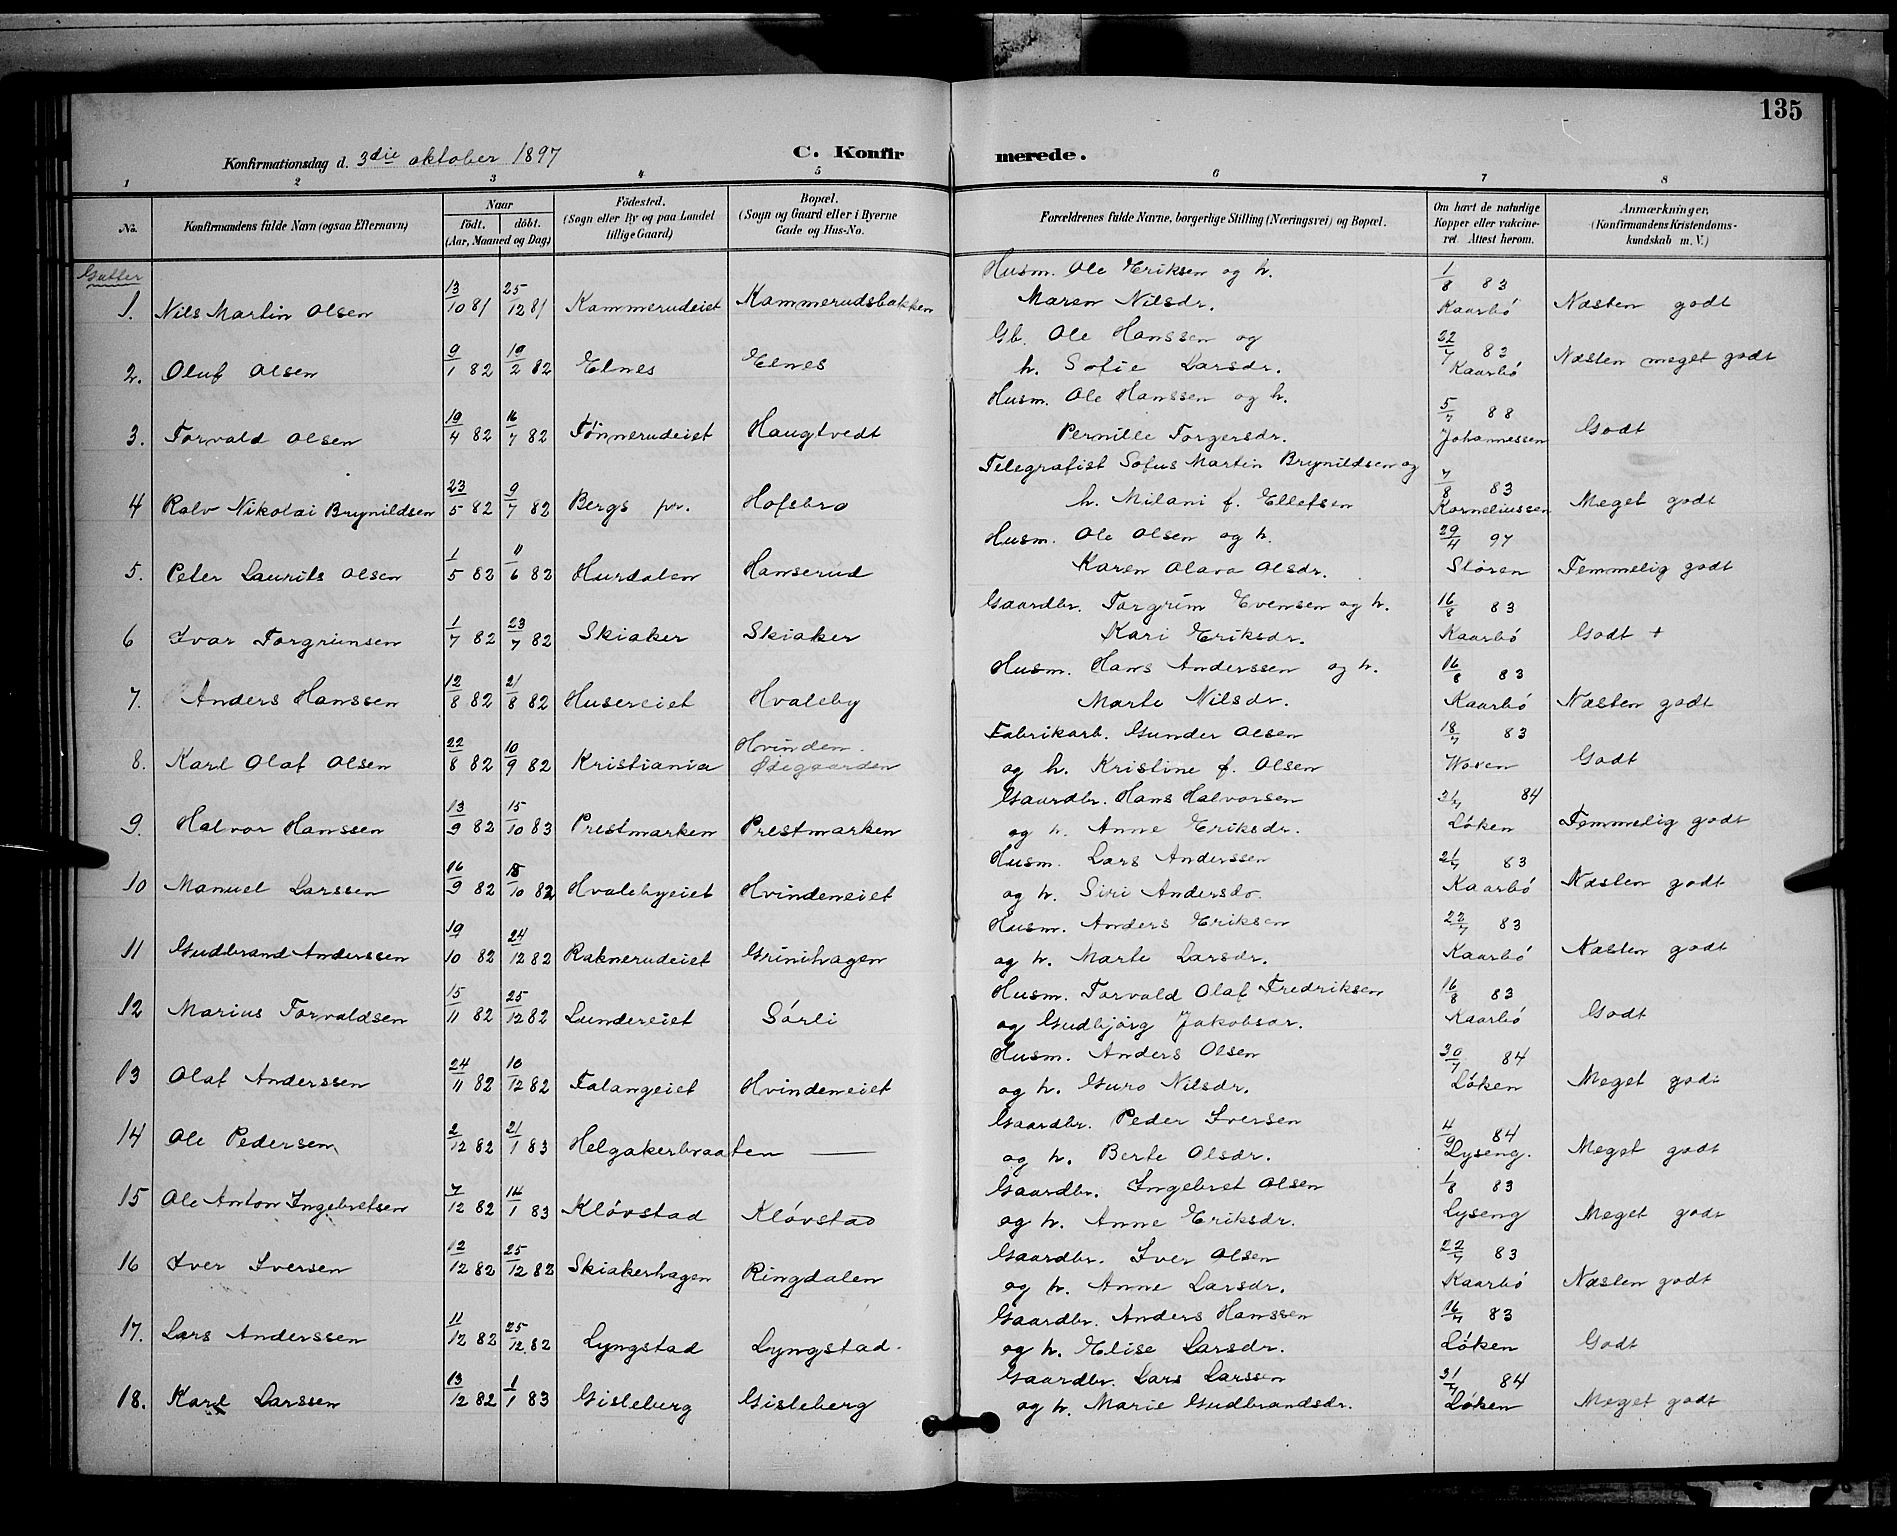 135
Konfirmationsdag d. 3die oktober 1897 C. Konfir merede.
1 2 3 4 5 6 7 8
No. Konfirmandens fulde Navn (ogsaa Efternavn) Naar født. døbt. (Aar, Maaned og Dag) Fødested. (Sogn eller By og paa Landet tillige Gaard) Bopæl. (Sogn og Gaard eller i Byerne Gade og Hus-No. Forældrenes fulde Navne, borgerlige Stilling (Næringsvei) og Bopæl. Om havt de naturlige Kopper eller vakcineret Attest herom. Anmærkninger, (Konfirmandens Kristendomskundskab m. V.)
Gutter
1. Nils Martin Olsen 13/10 81 25/12 81 Kammerudeiet Kammerudsbakken Husm. Ole Eriksen og h. Maren Nilsdr. 1/8 83 Kaarbó Næsten godt
2. Oluf Olsen 9/1 82 19/2 82 Elnes Elnes Gb. Ole Hanssen og h. Sofie Larsdr. 22/7 83 Kaarbó Næsten meget godt
3. Torvald Olsen 19/4 82 16/7 82 Tönnerudeiet Haugtvedt Husm. Ole Hanssen og h. Pernille Torgersdr. 5/7 88 Johannessen Godt
4 Ralv Nikolai Brynildsen 23/5 82 9/7 82 Bergs pr. Hofsbro Telegrafist Sofus Martin Brynildsen og h. Milani f. Ellefsen 7/8 83 Korneliussen Meget godt
5. Peter Laurits Olsen 1/5 82 11/6 82 Hurdalen Hanserud Husm. Ole Olsen og h. Karen Olava Olsdr. 29/4 97 Stören Temmelig godt
6 Ivar Torgrimsen 1/7 82 23/7 82 Skiaker Skiaker Gaardbr. Torgrim Evensen og h. Kari Eriksdr. 16/8 83 Kaarbó Godt +
7. Anders Hanssen 12/8 82 21/8 82 Husereiet Hvaleby Husm. Hans Anderssen og h. Marte Nilsdr. 16/8 83 Kaarbó Næsten godt
8. Karl Olaf Olsen 22/8 82 10/9 82 Kristiania Hvinden. Ødegaarden Fabrikarb. Gunder Olsen og h. Kristine f. Olsen 18/7 83 Godt
9. Halvor Hanssen 13/9 82 15/10 83 Prestmarken Prestmarken Gaardbr. Hans Halvorsen og h. Anne Eriksdr. 31/7 84 Lóken Temmelig godt
10 Manuel Larssen 16/9 82 15/10 82 Hvalebyeiet Hvindeneiet Husm. Lars Anderssen og h. Siri Andersdr. 21/7 83 Kaarbó Næsten godt
11 Gudbrand Anderssen 19/10 82 24/12 82 Raknerudeiet Grinihagen Husm. Anders Eriksen og h. Marte Larsdr. 22/7 83 Kaarbó Næsten godt
12 Marius Torvaldsen 15/11 82 25/12 82 Lundereiet Sórli Husm. Torvald Olaf Fredriksen og Gudbjórg Jakobsdr. 16/8 83 Kaarbó Godt
13 Olaf Anderssen 24/11 82 10/12 82 Falangeiet Hvindeneiet Husm. Anders Olsen og h. Guro Nilsdr. 30/7 84 Lóken Meget godt
14 Ole Pedersen 2/12 82 21/1 83 Helgakerbraaten — Gaardbr. Peder Iversen og h. Berte Olsdr. 4/9 84 Lyseng. Meget godt
15 Ole Anton Ingebretsen 7/12 82 14/1 83 Klóvstad Klóvstad Gaardbr. Ingebret Olsen og h. Anne Eriksdr. 1/8 83 Lyseng Meget godt
16 Iver Iversen 12/12 82 25/12 82 Skiakerhagen Ringdalen Gaardbr. Iver Olsen og h. Anne Larsdr. 22/7 83 Kaarbó Næsten godt
17. Lars Anderssen 11/12 82 25/12 82 Lyngstad Lyngstad. Gaardbr. Anders Hanssen og h. Elise Larsdr. 16/7 83 Lóken Godt
18. Karl Larssen 13/12 82 1/1 83 Gisleberg Gisleberg Gaardbr. Lars Larssen og h. Marie Gudbrandsdr. 31/7 84 Lóken Meget godt